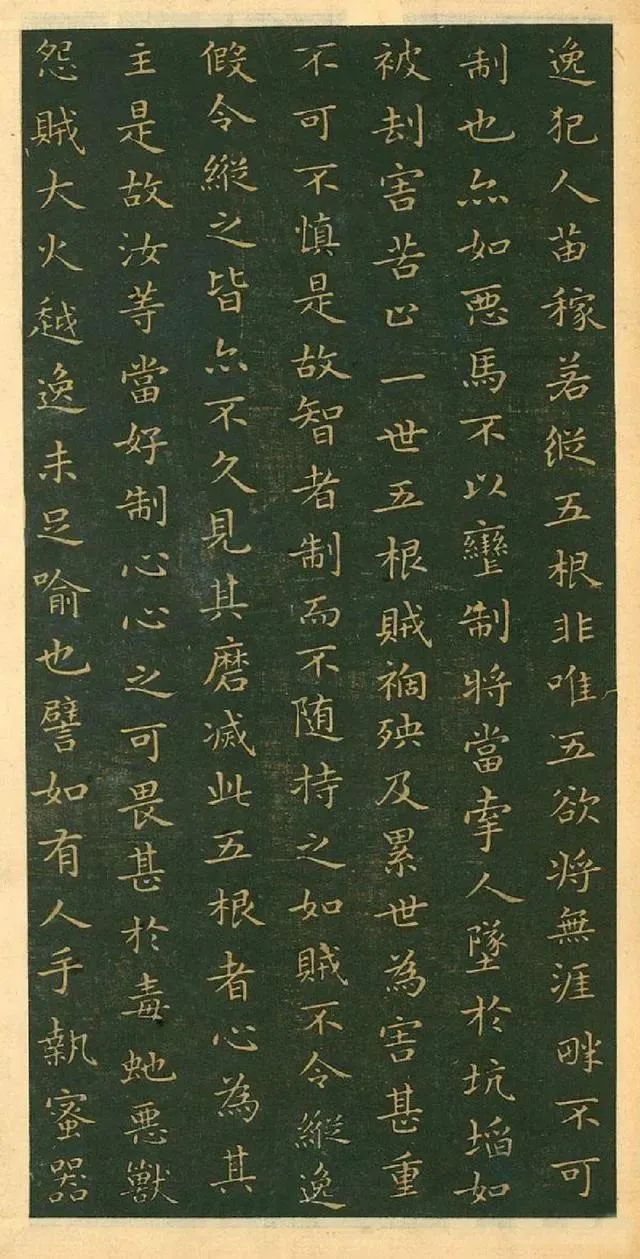 逸犯人苗稼若縱五根非唯五欲將無涯畔不可
制也亦如惡馬不以轡制將當牽人墜於坑埳如
被刦害苦止一世五根賊禍殃及累世為害甚重
不可不慎是故智者制而不随持之如賊不令縱逸
假令縱之皆亦不久見其磨滅此五根者心為其
主是故汝等當好制心心之可畏甚於毒虵惡獸
怨賊大火越逸未足喻也譬如有人手執蜜器